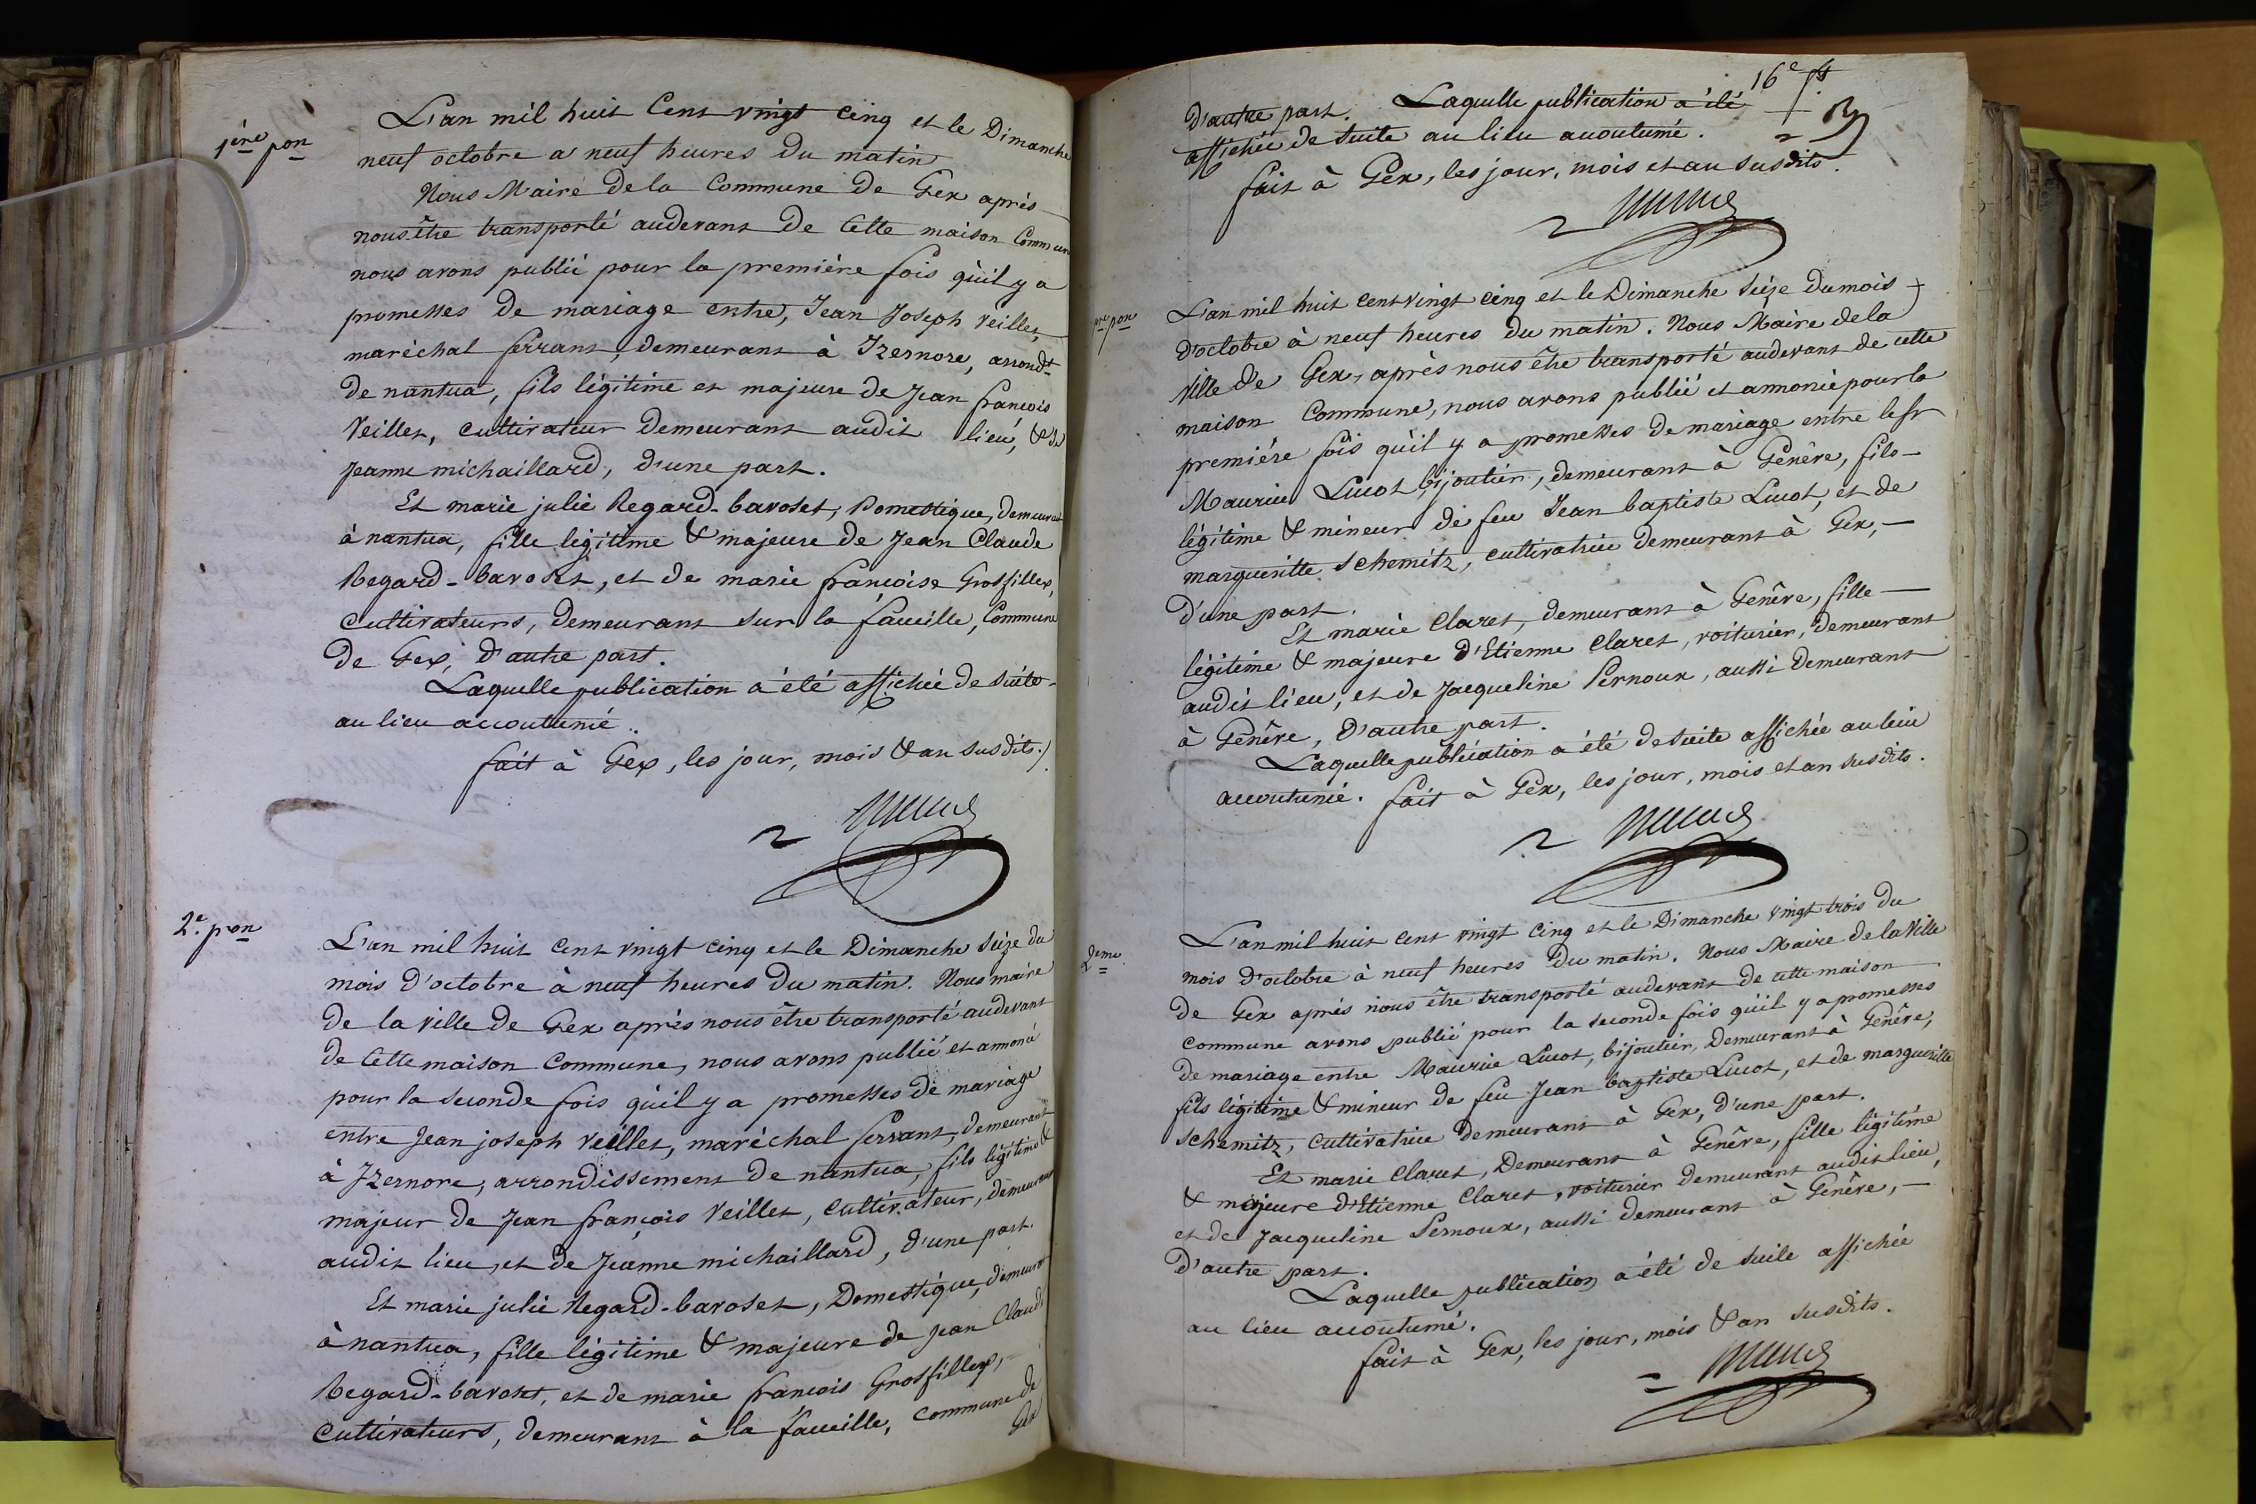 1ère pon
L'an mil huit Cent vingt cinq et le Dimanche
neuf octobre a neuf heures du matin
Nous Maire de la Commune de Gex après
nous être transporté audevant de Cette maison Commune
nous avons publié pour la première fois qu'il y a
promesses de mariage entre, Jean Joseph Veillet,
maréchal ferrant, demeurant à Izernore, arrondt
de nantua, fils légitime et majeure de Jean françois
Veillet, cultivateur demeurant audit lieu, & de
Jeanne michaillard, d'une part.
Et marie julie Regard-baroset, Domestique, demeurant
à nantua, fille légitime & majeure de Jean Claude
Regard-baroset, et de marie françoise Grosfillex,
cultivateurs, demeurant sur la faucille, Commune
de Gex, d'autre part.
Laquelle publication a été affichée de suite
au lieu accoutumé.
fait à Gex, les jour, mois & an susdits.
2e. pon
L'an mil huit cent vingt cinq et le Dimanche seize du
mois d'octobre à neuf heures du matin. Nous maire
de la ville de Gex après nous être transporté audevant
de Cette maison Commune, nous avons publié et annoncé
pour la seconde fois qu'il y a promesses de mariage
entre Jean joseph Veillet, maréchal ferrant, demeurant
à Izernore, arrondissement de nantua, fils légitime &
majeur de Jean françois Veillet, cultivateur, demeurant
audit lieu, et de Jeanne michaillard, d'une part.
Et marie julie Regard-baroset, Domestique, demeurant
à nantua, fille légitime & majeure de Jean Claude
Regard-baroset, et de marie françois Grosfillex,
cultivateurs, demeurant à la faucille, commune de
Gex
16e
D'autre part. Laquelle publication a été
affichée de suite au lieu accoutumé.
fait à Gex, les jour, mois et an susdits.
1re pon
L'an mil huit cent vingt cinq et le Dimanche seize du mois
d'octobre à neuf heures du matin. Nous Maire de la
ville de Gex, après nous être transporté audevant de cette
maison Commune, nous avons publié et annoncé pour la
première fois qu'il y a promesses de mariage entre le sr
Maurice Lucot, bijoutier, demeurant à Genêve, fils
légitime & mineur de feu Jean baptiste Lucot, et de
margueritte Schemitz, cultivatrice demeurant à Gex,
d'une part.
Et marie Claret, demeurant à Genêve, fille
légitime & majeure d'Etienne Claret, voiturier, demeurant
audit lieu, et de Jacqueline Pernoux, aussi demeurant
à Genêve, d'autre part.
Laquelle publication a été de suite affichée au lieu
accoutumé. fait à Gex, les jour, mois et an susdits.
2eme
L'an mil huit cent vingt cinq et le Dimanche vingt trois du
mois d'octobre à neuf heures du matin. Nous Maire de la Ville
de Gex après nous être transporté audevant de cette maison
commune avons publié pour la seconde fois qu'il y a promesses
de mariage entre Maurice Lucot, bijoutier, Demeurant à Genêve,
fils légitime & mineur de feu Jean baptiste Lucot, et de margueritte
Schemitz, cultivatrice demeurant à Gex, d'une part.
Et marie Claret, Demeurant à Genêve, fille légitime
& majeure d'Etienne Claret, voiturier demeurant audit lieu,
et de Jacqueline Pernoux, aussi demeurant à Genêve,
d'autre part.
Laquelle publication a été de suite affichée
au lieu accoutumé.
fait à Gex, les jour, mois & an susdits.